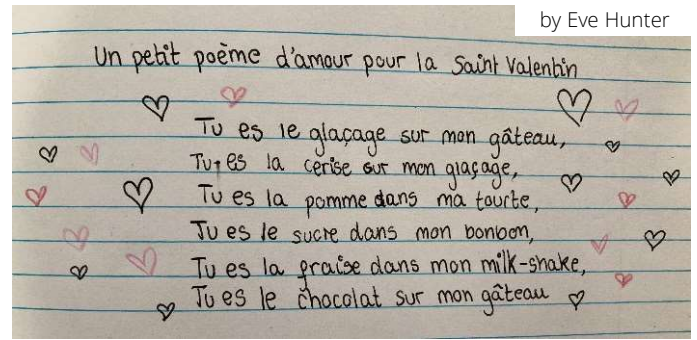 by Eve Hunter
Un petit poème d'amour pour la Saint Valentin
Tu es le glaçage sur mon gâteau,
Tu es la cerise sur mon glaçage,
Tu es la pomme dans ma tourte,
Tu es le sucre dans mon bonbon,
Tu es la fraise dans mon milk-shake,
Tu es le chocolat sur mon gâteau